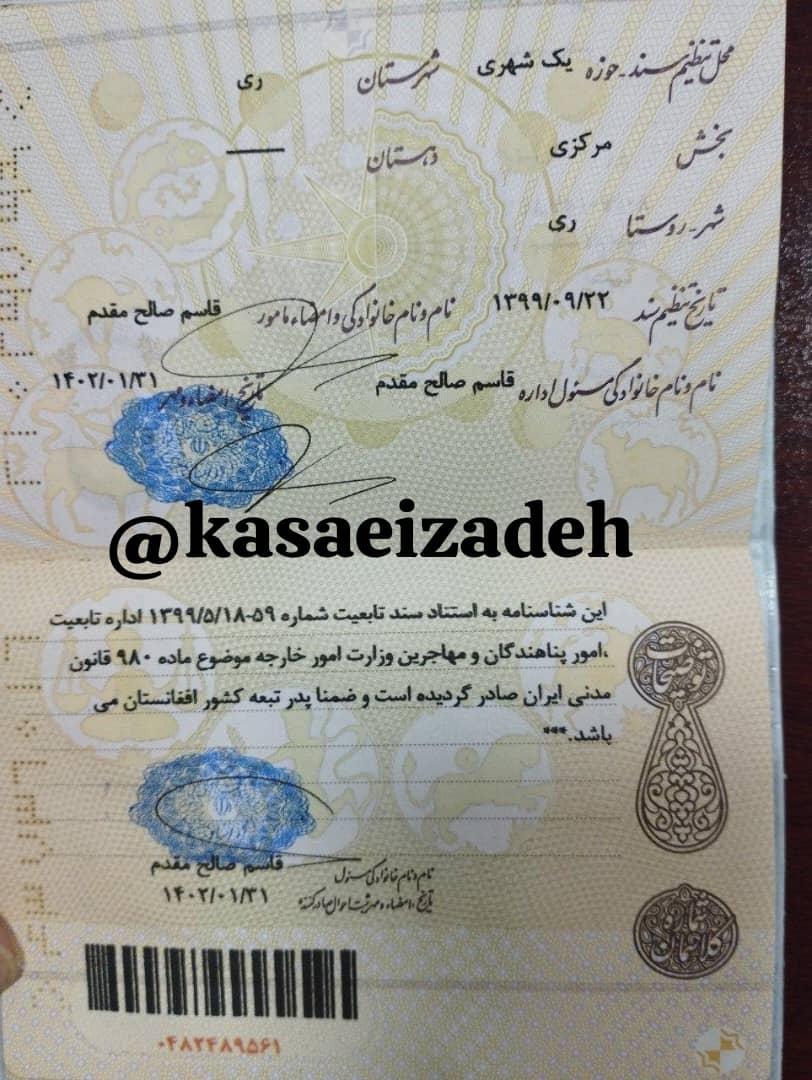 محل تنظیم سند-حوزه یک شهری شهرستان ری
بخش مرکزی دهستان ——
شهر-روستا ری
تاریخ تنظیم سند ۱۳۹۹/۰۹/۲۲ نام و نام خانوادگی و امضاء مامور قاسم صالح مقدم
نام و نام خانوادگی مسئول اداره قاسم صالح مقدم تاریخ، امضاء و مهر ۱۴۰۲/۰۱/۳۱
@kasaeizadeh
توضیحات
این شناسنامه به استناد سند تابعیت شماره ۵۹-۱۳۹۹/۵/۱۸ اداره تابعیت
،امور پناهندگان و مهاجرین وزارت امور خارجه موضوع ماده ۹۸۰ قانون
مدنی ایران صادر گردیده است و ضمنا پدر تبعه کشور افغانستان می
باشد.***
نام و نام خانوادگی مسئول قاسم صالح مقدم
تاریخ، امضاء و مهر ثبت احوال صادرکننده ۱۴۰۲/۰۱/۳۱
شماره
۰۴۸۲۴۸۹۵۶۱